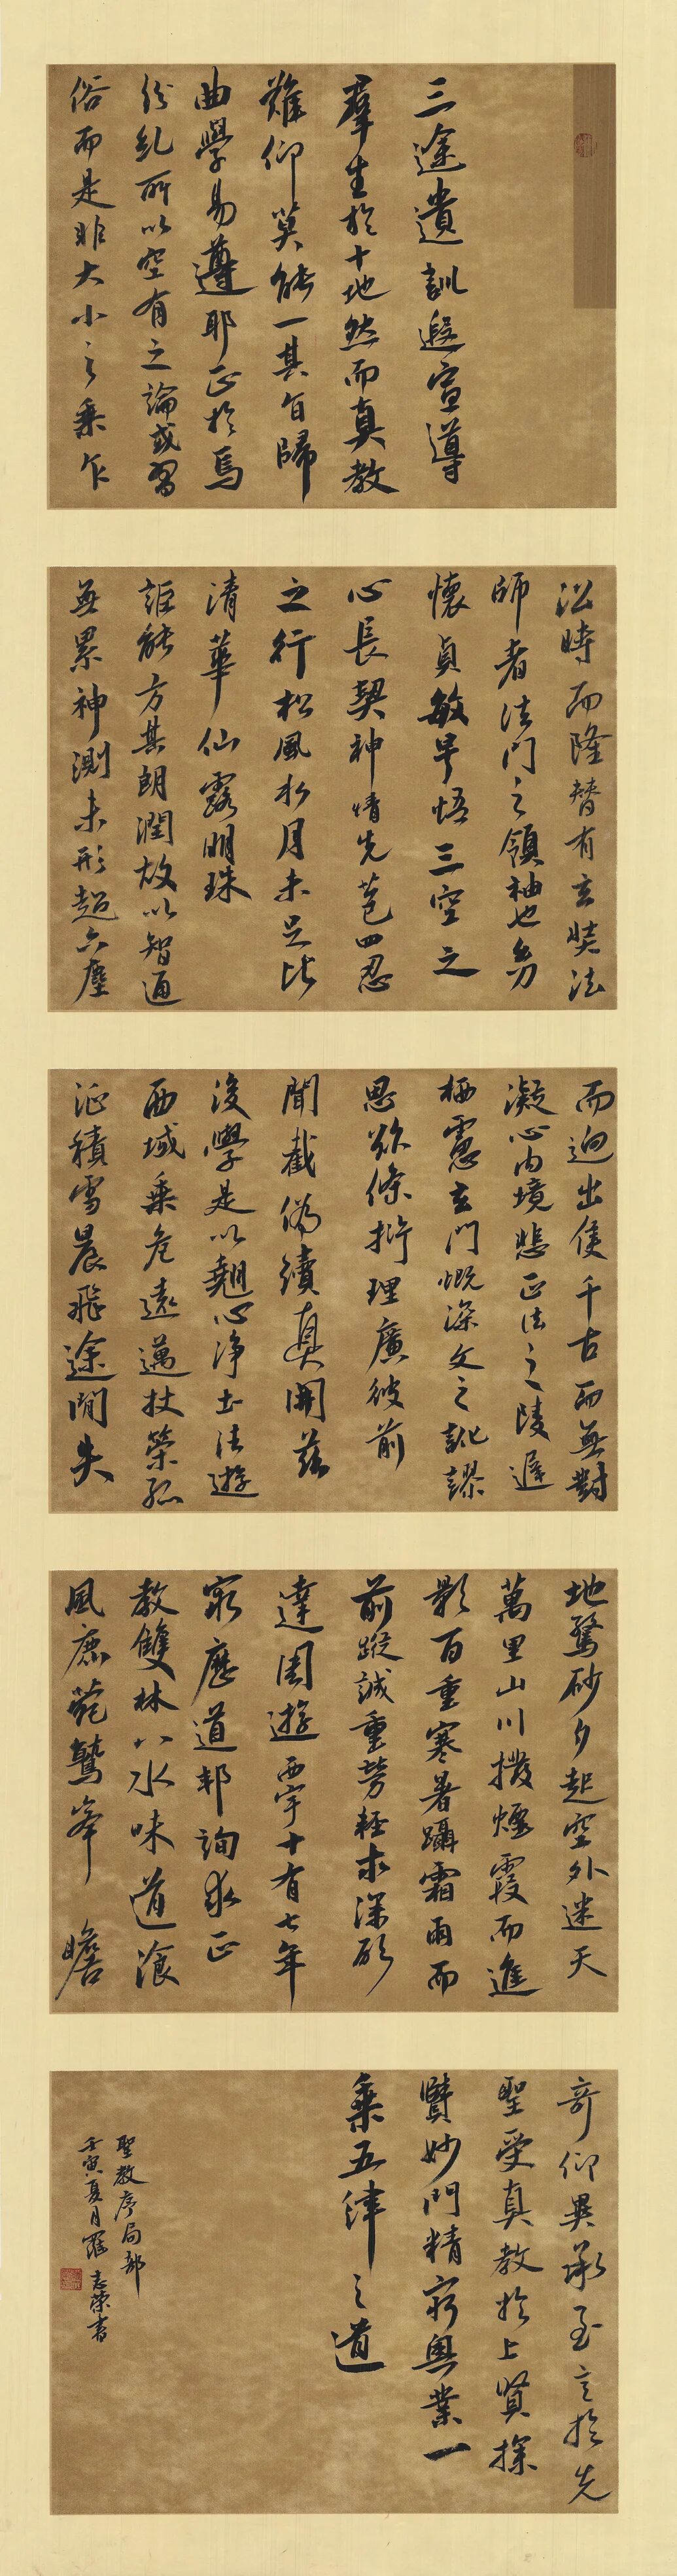 三途遺訓遐宣導
羣生於十地然而真教
難仰莫能一其旨歸
曲學易遵耶正於焉
紛糺所以空有之論或習
俗而是非大小之乘乍
沿時而隆替有玄奘法
師者法門之領袖也幼
懷貞敏早悟三空之
心長契神情先苞四忍
之行松風水月未足比
清華仙露明珠
詎能方其朗潤故以智通
無累神測未形超六塵
而迥出隻千古而無對
凝心內境悲正法之陵遲
栖慮玄門慨深文之訛謬
思欲條析理廣彼前
聞截偽續真開茲
後學是以翹心淨土法遊
西域乘危遠邁杖策孤
征積雪晨飛途閒失
地驚砂夕起空外迷天
萬里山川撥煙霞而進
影百重寒暑躡霜雨而
前蹤誠重勞輕求深願
達周遊西宇十有七年
窮歷道邦詢求正
教雙林八水味道湌
風鹿菀鷲峯瞻
奇仰異承至言於先
聖受真教於上賢探
賾妙門精窮奧業一
乘五律之道
聖教序局部
壬寅夏月羅志榮書